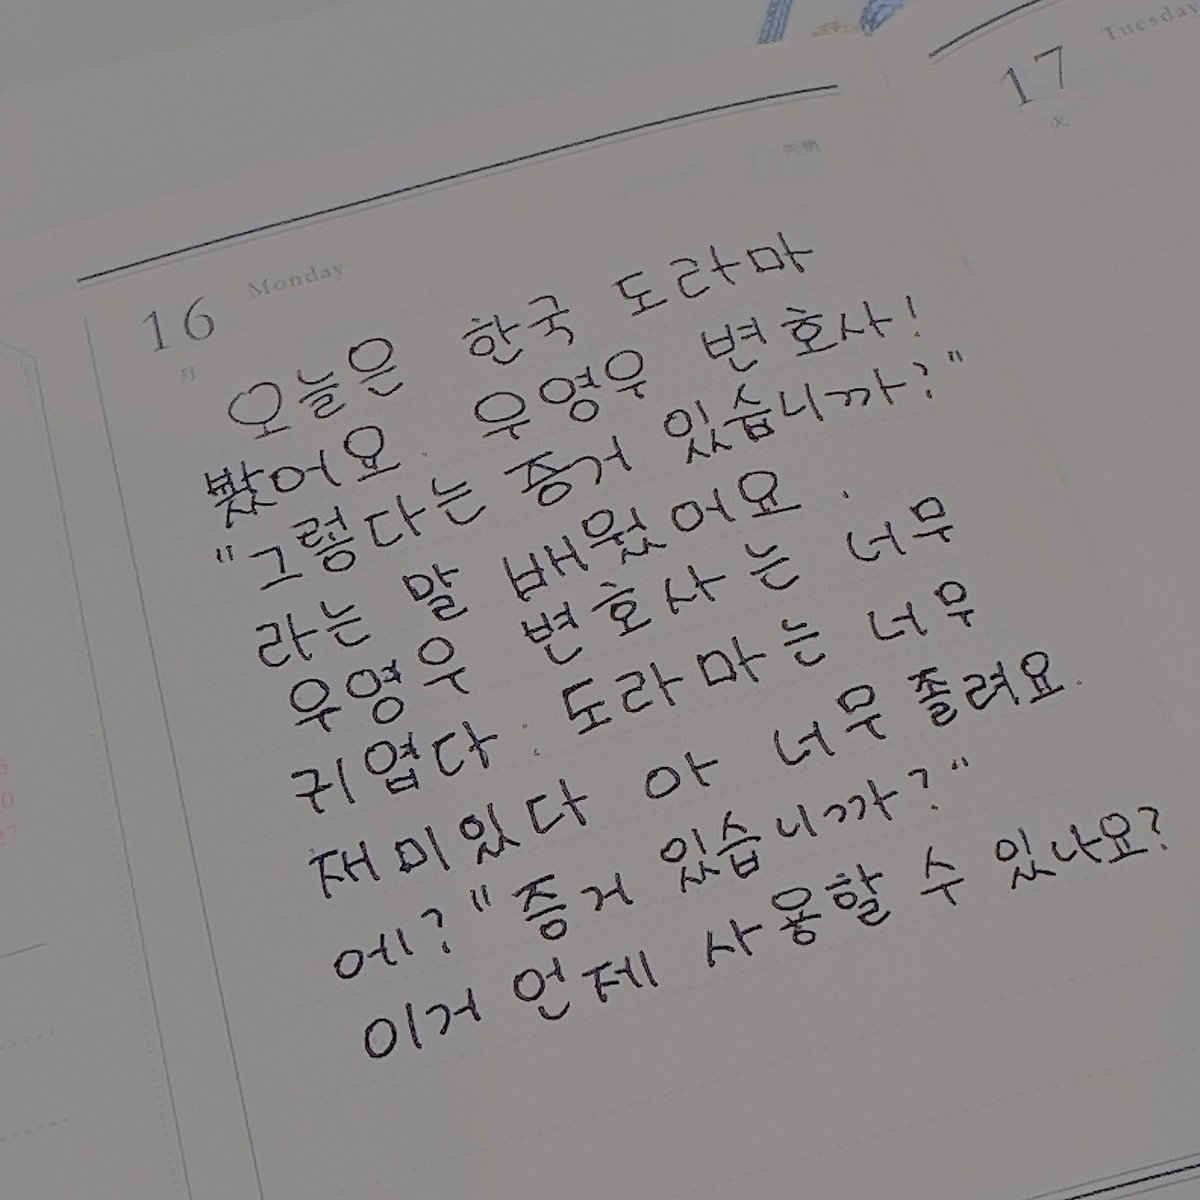 16 Monday
月
오늘은 한국 도라마
봤어요. 우영우 변호사!
"그렇다는 증거 있습니까?"
라는 말 배웠어요.
우영우 변호사는 너무
귀엽다. 도라마는 너무
재미있다 아 너무 졸려요.
에? "증거 있습니까?"
이거 언제 사용할 수 있나요?
17 Tuesday
火